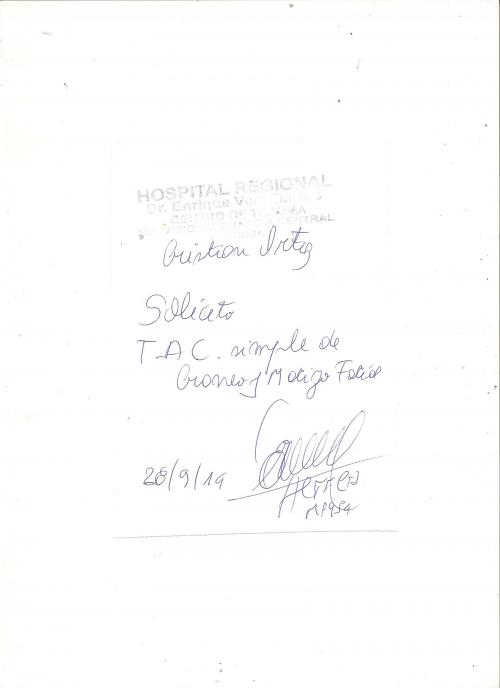 HOSPITAL REGIONAL
Dr. Enrique Vera
CENTRO DE
CENTRAL
Cristian Ortiz
Solicito
T.A.C. simple de
Craneo y Macizo Facial
28/9/19
Herrera